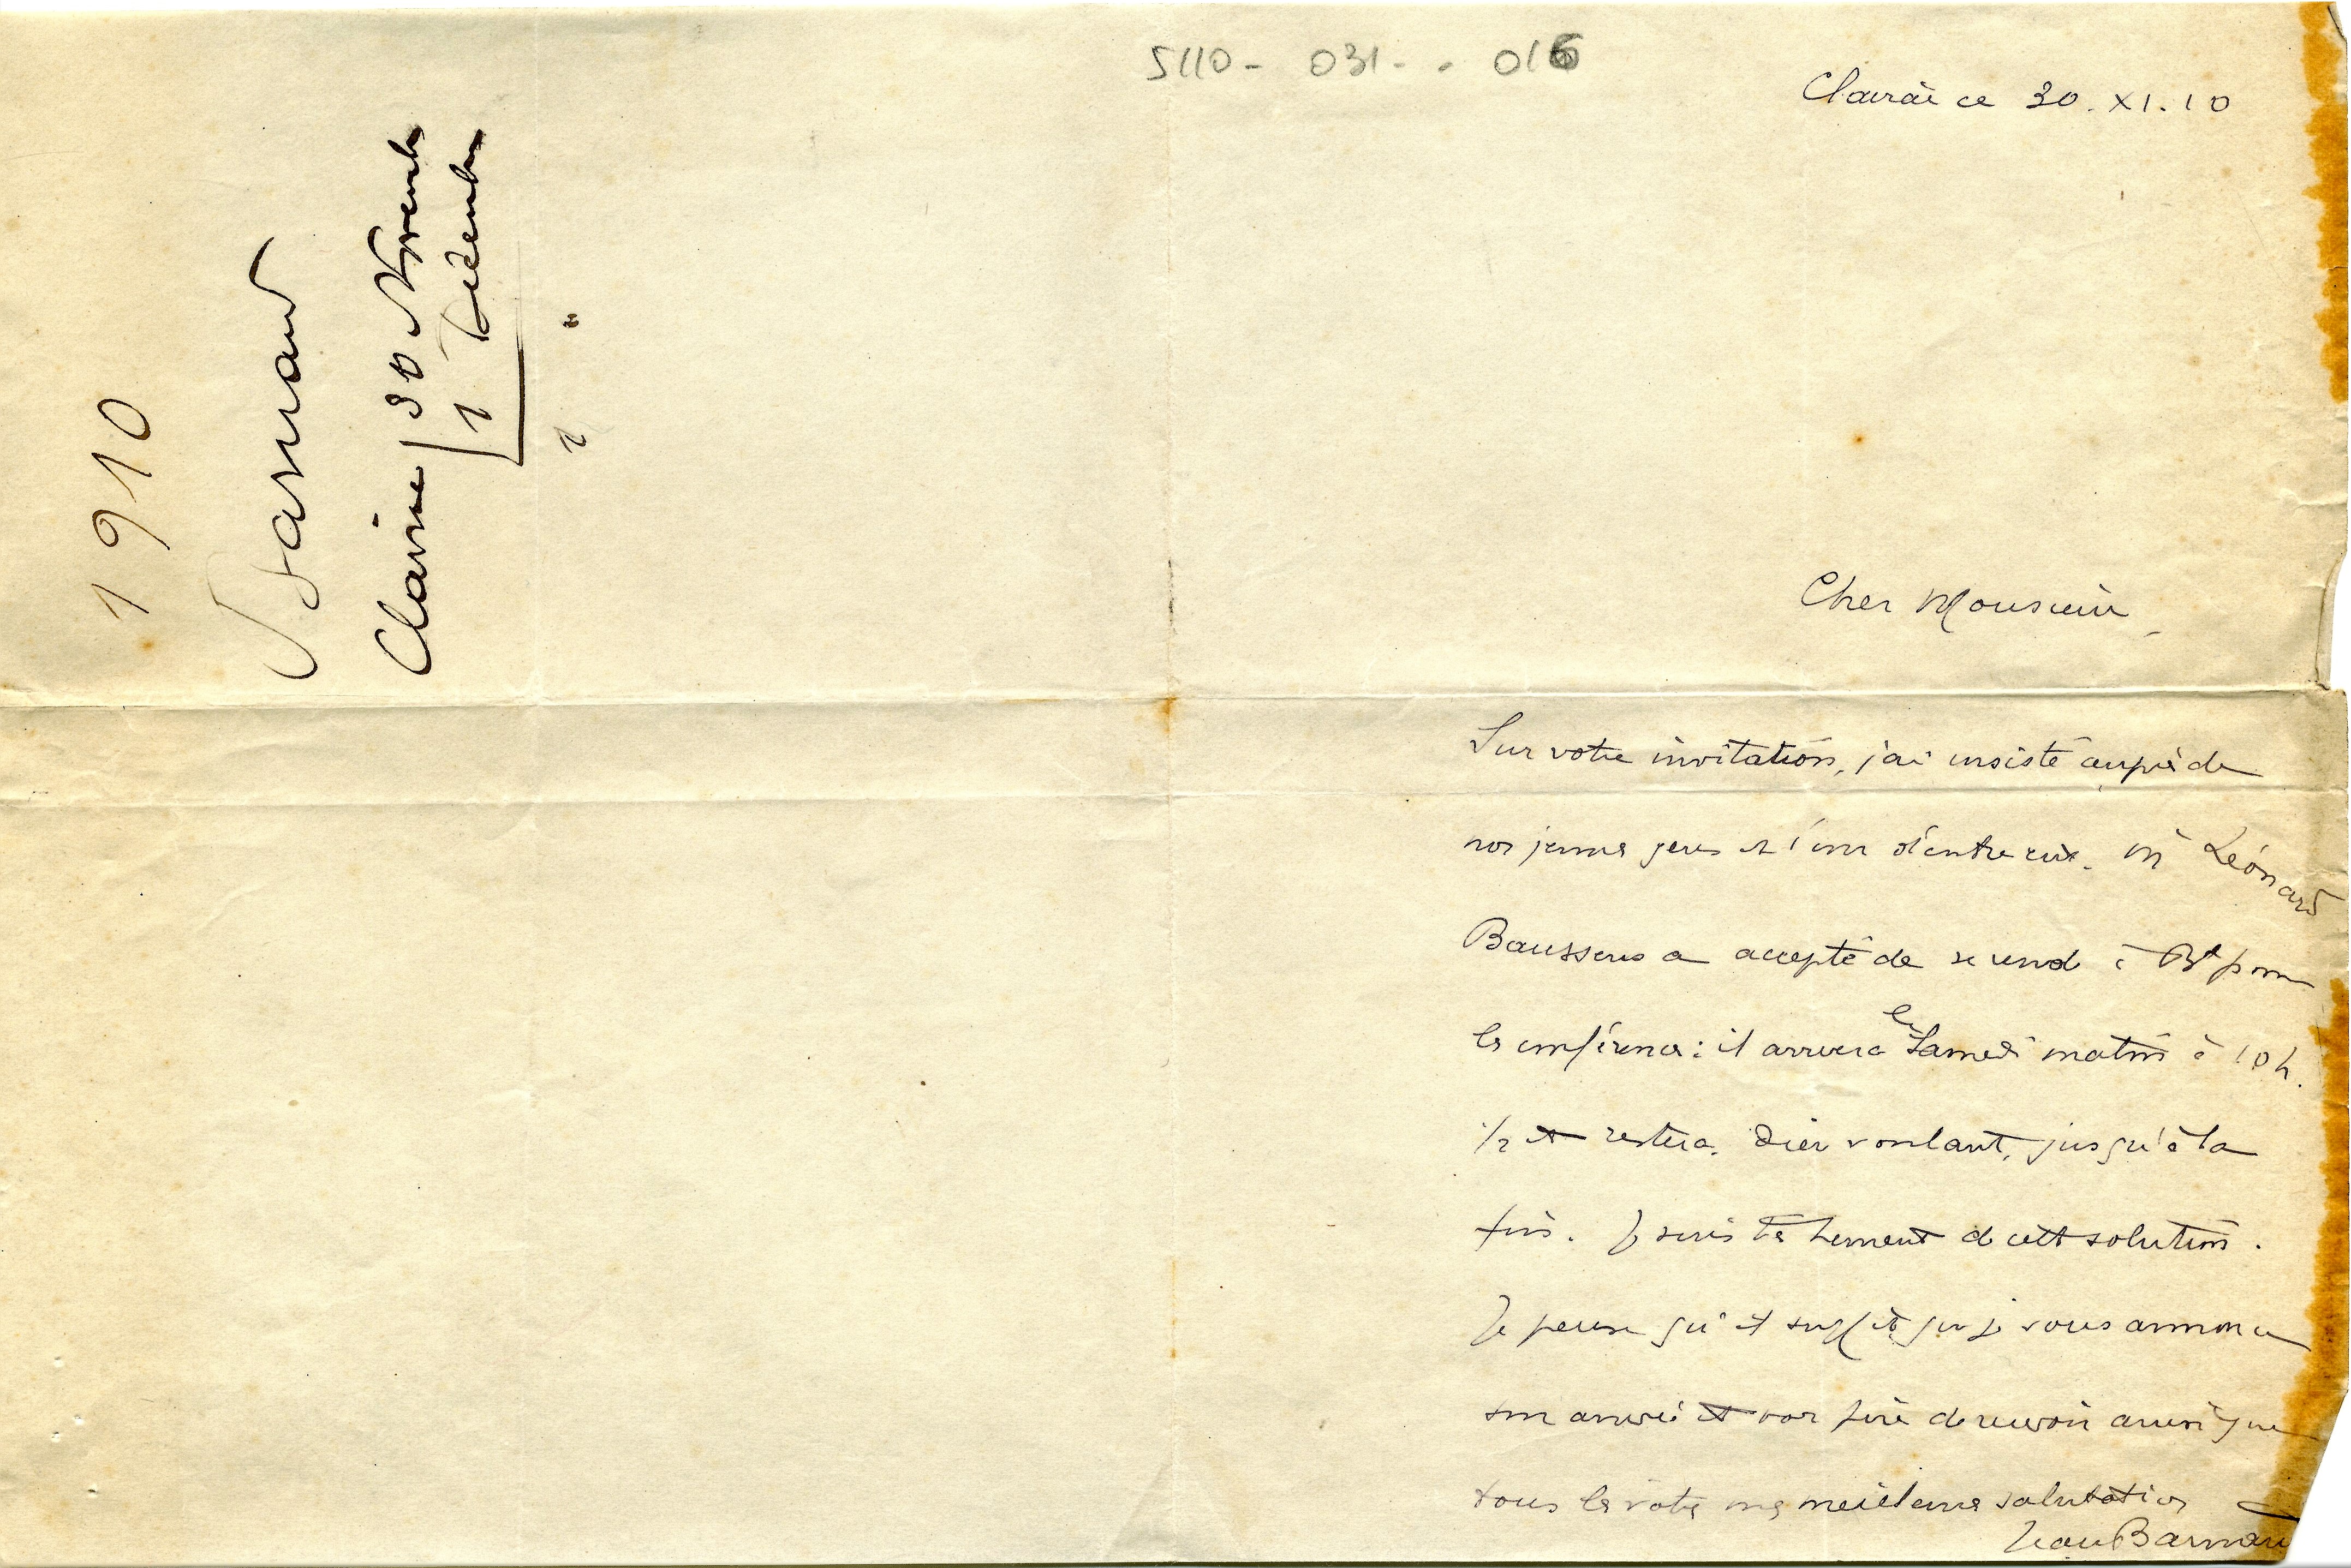 1910
Barnaud
Clairac 30 Novembre
1 Décembre
1 "
5110 - 031 - - 016
Clairac ce 30. XI. 10
Cher Monsieur,
Sur votre invitation, j'ai insisté auprès de
nos jeunes gens et l'un d'entre eux. M Léonard
Baussens a accepté de se rendre à Bx pour
les conférences : il arrivera le Samedi matin à 10 h.
1/2 et restera, Dieu voulant, jusqu'à la
fin. Je suis très heureux de cette solution.
Je pense qu'il suffit que je vous annonce
son arrivée et vous prie de recevoir ainsi que
tous les vôtres mes meilleures salutations
Jean Barnaud